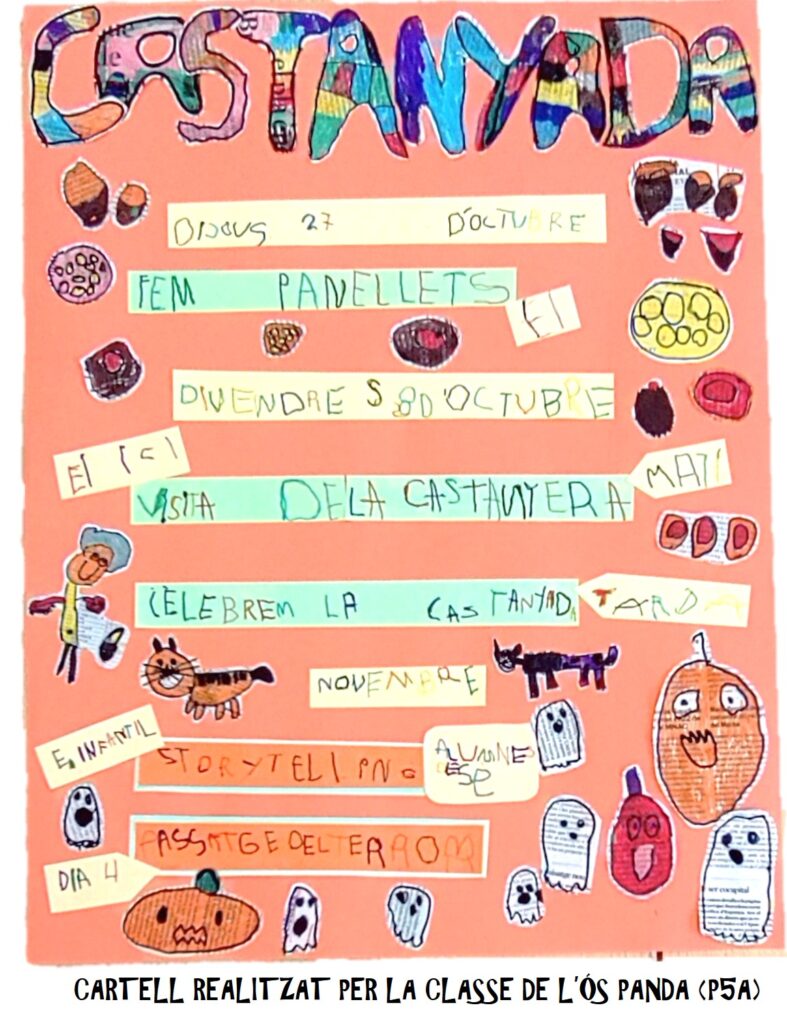 CASTANYADA
DIJOUS 27 D'OCTUBRE
FEM PANELLETS
EI
DIVENDRE S 28 D'OCTUBRE
EI ICI
MATI
VISITA DE LA CASTANYERA
CELEBREM LA CASTANYADA TARDA
NOVEMBRE
E. INFANTIL
STORYTELLING
ALUMNES
ESO
PASSATGE DEL TERROR
DIA 4
ser cocupital
CARTELL REALITZAT PER LA CLASSE DE L'ÓS PANDA (P5A)